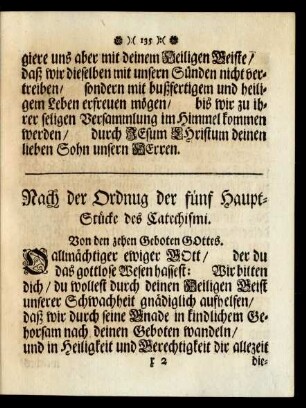 ):( 135 ):(
giere uns aber mit deinem Heiligen Geiste/
daß wir dieselben mit unsern Sünden nicht ver-
treiben/ sondern mit bußfertigem und heili-
gem Leben erfreuen mögen/ bis wir zu ih-
rer seligen Versammlung im Himmel kommen
werden/ durch JEsum CHristum deinen
lieben Sohn unsern HErren.
Nach der Ordnug der fünf Haupt-
Stücke des Catechismi.
Von den zehen Geboten GOttes.
O allmächtiger ewiger GOtt/ der du
das gottlose Wesen hassest: Wir bitten
dich/ du wollest durch deinen Heiligen Geist
unserer Schwachheit gnädiglich aufhelfen/
daß wir durch seine Gnade in kindlichem Ge-
horsam nach deinen Geboten wandeln/
und in Heiligkeit und Gerechtigkeit dir allezeit
F 2 die-